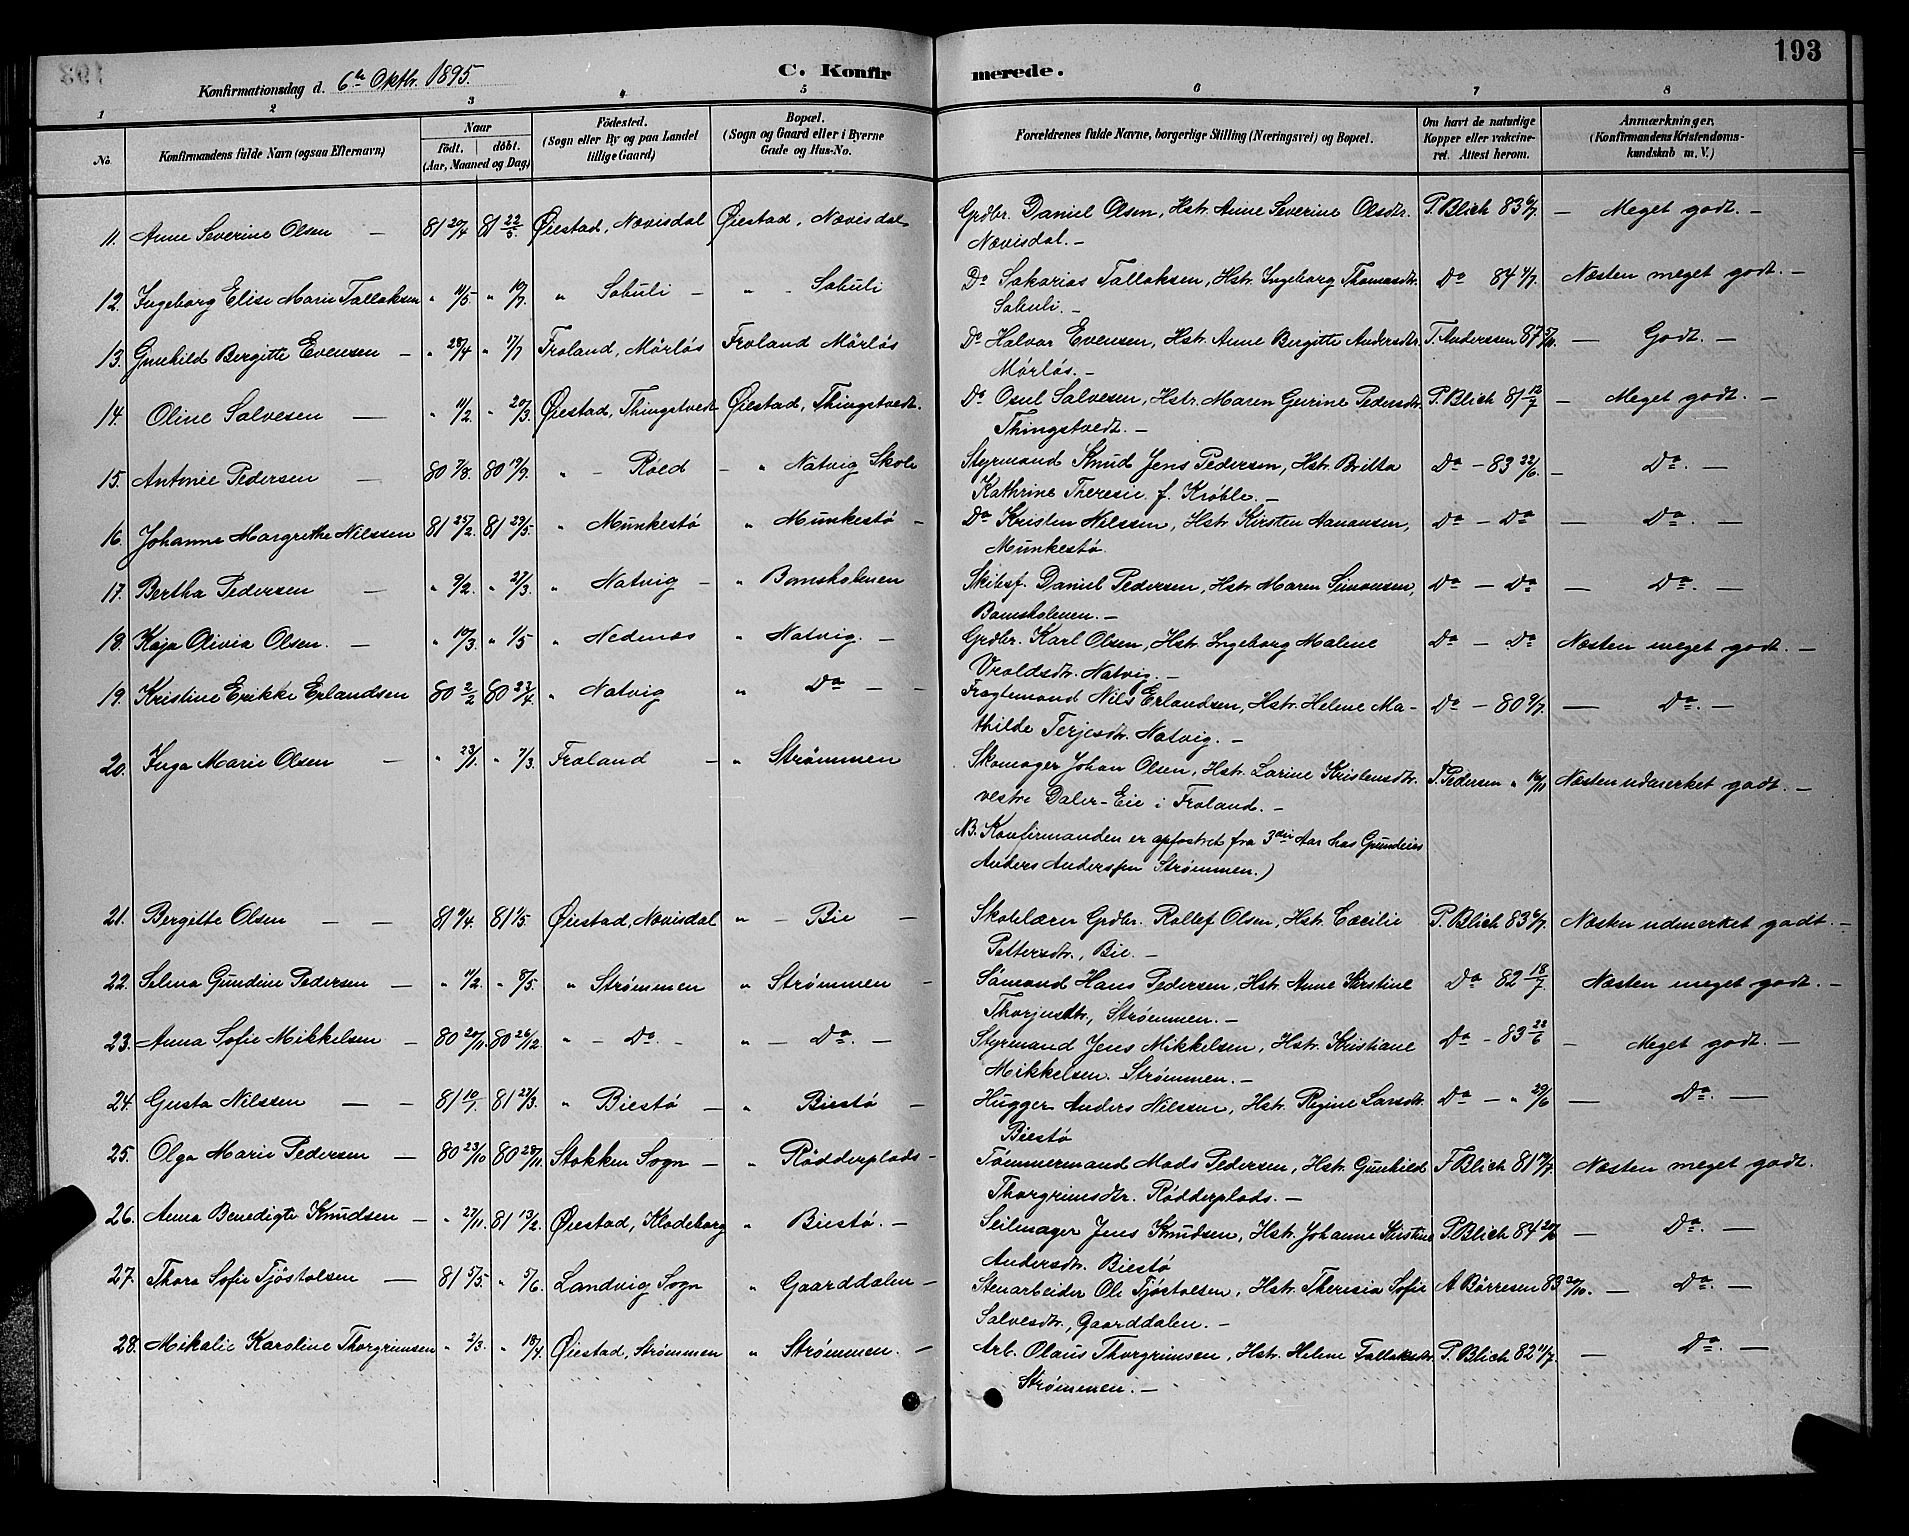 193
Konfirmationsdag d. 6te Oktbr. 1895.
C. Konfirmerede.
1 2 3 4 5 6 7 8
No. Konfirmandens fulde Navn (ogsaa Efternavn) Naar födt. döbt. (Aar, Maaned og Dag) Födested. (Sogn eller By og paa Landet tillige Gaard) Bopæl. (Sogn og Gaard eller i Byerne Gade og Hus-No. Forældrenes fulde Navne, borgerlige Stilling (Næringsvei) og Bopæl. Om havt de naturlige Kopper eller vakcineret. Attest herom. Anmærkninger. (Konfirmandens Kristendomskundskab m. V.)
11. Anne Severine Olsen — 81 20/4 81 22/5 Øiestad, Nævisdal Øiestad, Nævisdal Grdbr. Daniel Olsen, Hstr. Anne Severine Olsdtr. P. Blich 83 6/7 — Meget godt. —
Nævisdal. —
12. Ingeborg Elise Marie Tallaksen " 11/5 " 10/7 " Sabuli — " - Sabuli Do Sakarias Tallaksen, Hstr. Ingeborg Thomasdtr. Do 84 4/7. Næsten meget godt. —
Sabuli. —
13. Gunhild Bergitte Evensen — " 28/4 " 17/7 Froland, Mørløs Froland Mørløs Do Halvor Evensen, Hstr. Anne Bergitte Andersdtr. T. Anderssen 87 — Godt. —
Mørløs. —
14. Oline Salvesen — " 11/2 " 20/3 Øiestad, Thingstvedt Øiestad, Thingstvedt. Do Osul Salvesen, Hstr. Maren Gurine Pedersdtr. P. Blich 81 12/7 — Meget godt. —
Thingstvedt. —
15. Antonie Pedersen — 80 7/8. 80 19/9. " - Røed - " Natvig Skole Styrmand Knud Jens Pedersen, Hstr. Britta Do — 83 22/6. — Do. —
Kathrine Theresie f. Krøble. —
16. Johanne Margrethe Nilssen 81 25/2. 81 29/5. " Munkestø " Munkestø - Do Kristen Nilssen, Hstr. Kirsten Aanansen, Do — Do — Do. —
Munkestø.
17. Bertha Pedersen — " 9/2. " 27/3. " Natvig — " Bomsholmen Skibsf. Daniel Pedersen, Hstr. Maren Simonsen, Do — Do — Do. —
Bomsholmen. —
18. Kaja Olivia Olsen. — " 10/3 " 1/5 " Nedenæs " Natvig. — Grdbr. Karl Olsen, Hstr. Ingeborg Malene Do — Do Næsten meget godt. —
Vroldsdtr. Natvig. —
19. Kristine Erikke Erlandsen 80 2/2 80 27/4. " Natvig " Do — — Fragtemand Nils Erlandsen, Hstr. Helene Ma- Do — 80 9/7. — Do. —
thilde Terjesdtr. Natvig. —
20. Inga Marie Olsen — " 23/1. " 7/3. Froland — " Strømmen Skomager Johan Olsen, Hstr. Larine Kristensdtr. P. Pedersen " 16/11 Næsten udmerket godt. —
vestre Daler-Eie i Froland. —
NB. Konfirmanden er opfostret fra 3die Aar hos Gaardeier
Anders Anderssen Strømmen.)
21. Bergitte Olsen — — 81 9/4. 81 1/5. Øiestad, Nævisdal " — Bie — Skolelærer Grdbr. Rollef Olsen, Hstr. Cæcilie P. Blich 83 6/7. Næsten udmerket godt. —
Pettersdtr., Bie. —
22. Selma Gundine Pedersen — " 11/2. " 8/5. " Strømmen " Strømmen — Sømand Hans Pedersen, Hstr. Anne Kirstine Do 82 18/7. Næsten meget godt. —
Thorjusdtr., Strømmen. —
23. Anna Sofie Mikkelsen — 80 20/11. 80 26/12 " — Do. — " — Do. — Styrmand Jens Mikkelsen, Hstr. Kristiane Do — 83 22/6 — Meget godt. —
Mikkelsen. Strømmen. —
24. Gusta Nilssen — — 81 10/1. 81 27/3. " Biestø — " Biestø — Hugger Anders Nilssen, Hstr. Regine Larsdtr. Do — " 29/6 — Do. —
Biestø
25. Olga Marie Pedersen — 80 23/10 80 28/11. Stokken Sogn — " Rødderplads- Tømmermand Mads Pedersen, Hstr. Gunhild F. Blich 81 19/7. Næsten meget godt.
Thorgrimsdtr. Rødderplads. —
26. Anna Benedigte Knudsen — " 27/11. 81 13/2. Øiestad, Klodeborg " Biestø. — Seilmager Jens Knudsen, Hstr. Johanne Kirstine P. Blich 84 20/6 — Do. —
Andersdtr. Biestø
27. Thora Sofie Tjöstolsen — 81 5/5. " 5/6. Landvig Sogn " Gaarddalen — Stenarbeider Ole Tjöstolsen, Hstr. Theresia Sofie A Børresen 83 30/10. — Do. —
Salvesdtr., Gaarddalen. —
28. Mikalie Karoline Thorgrimsen " 2/3. " 18/4 Øiestad, Strømmen " Strømmen. — Arb. Olaus Thorgrimsen, Hstr. Helene Tallaksdtr. P. Blich 82 11/7. — Do. —
Strømmen. —